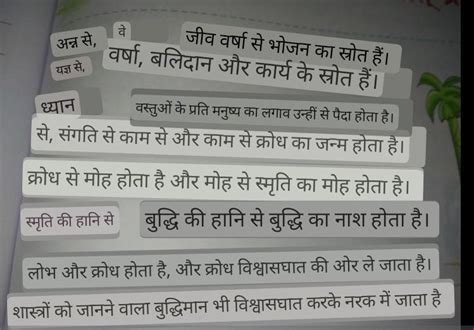 अन्न से, वे जीव वर्षा से भोजन का स्रोत हैं।
यज्ञ से, वर्षा, बलिदान और कार्य के स्रोत हैं।
ध्यान वस्तुओं के प्रति मनुष्य का लगाव उन्हीं से पैदा होता है।
से, संगति से काम से और काम से क्रोध का जन्म होता है।
क्रोध से मोह होता है और मोह से स्मृति का मोह होता है।
स्मृति की हानि से बुद्धि की हानि से बुद्धि का नाश होता है।
लोभ और क्रोध होता है, और क्रोध विश्वासघात की ओर ले जाता है।
शास्त्रों को जानने वाला बुद्धिमान भी विश्वासघात करके नरक में जाता है